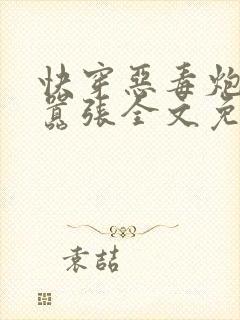 快穿惡毒炮
囂張全文免
袁喆